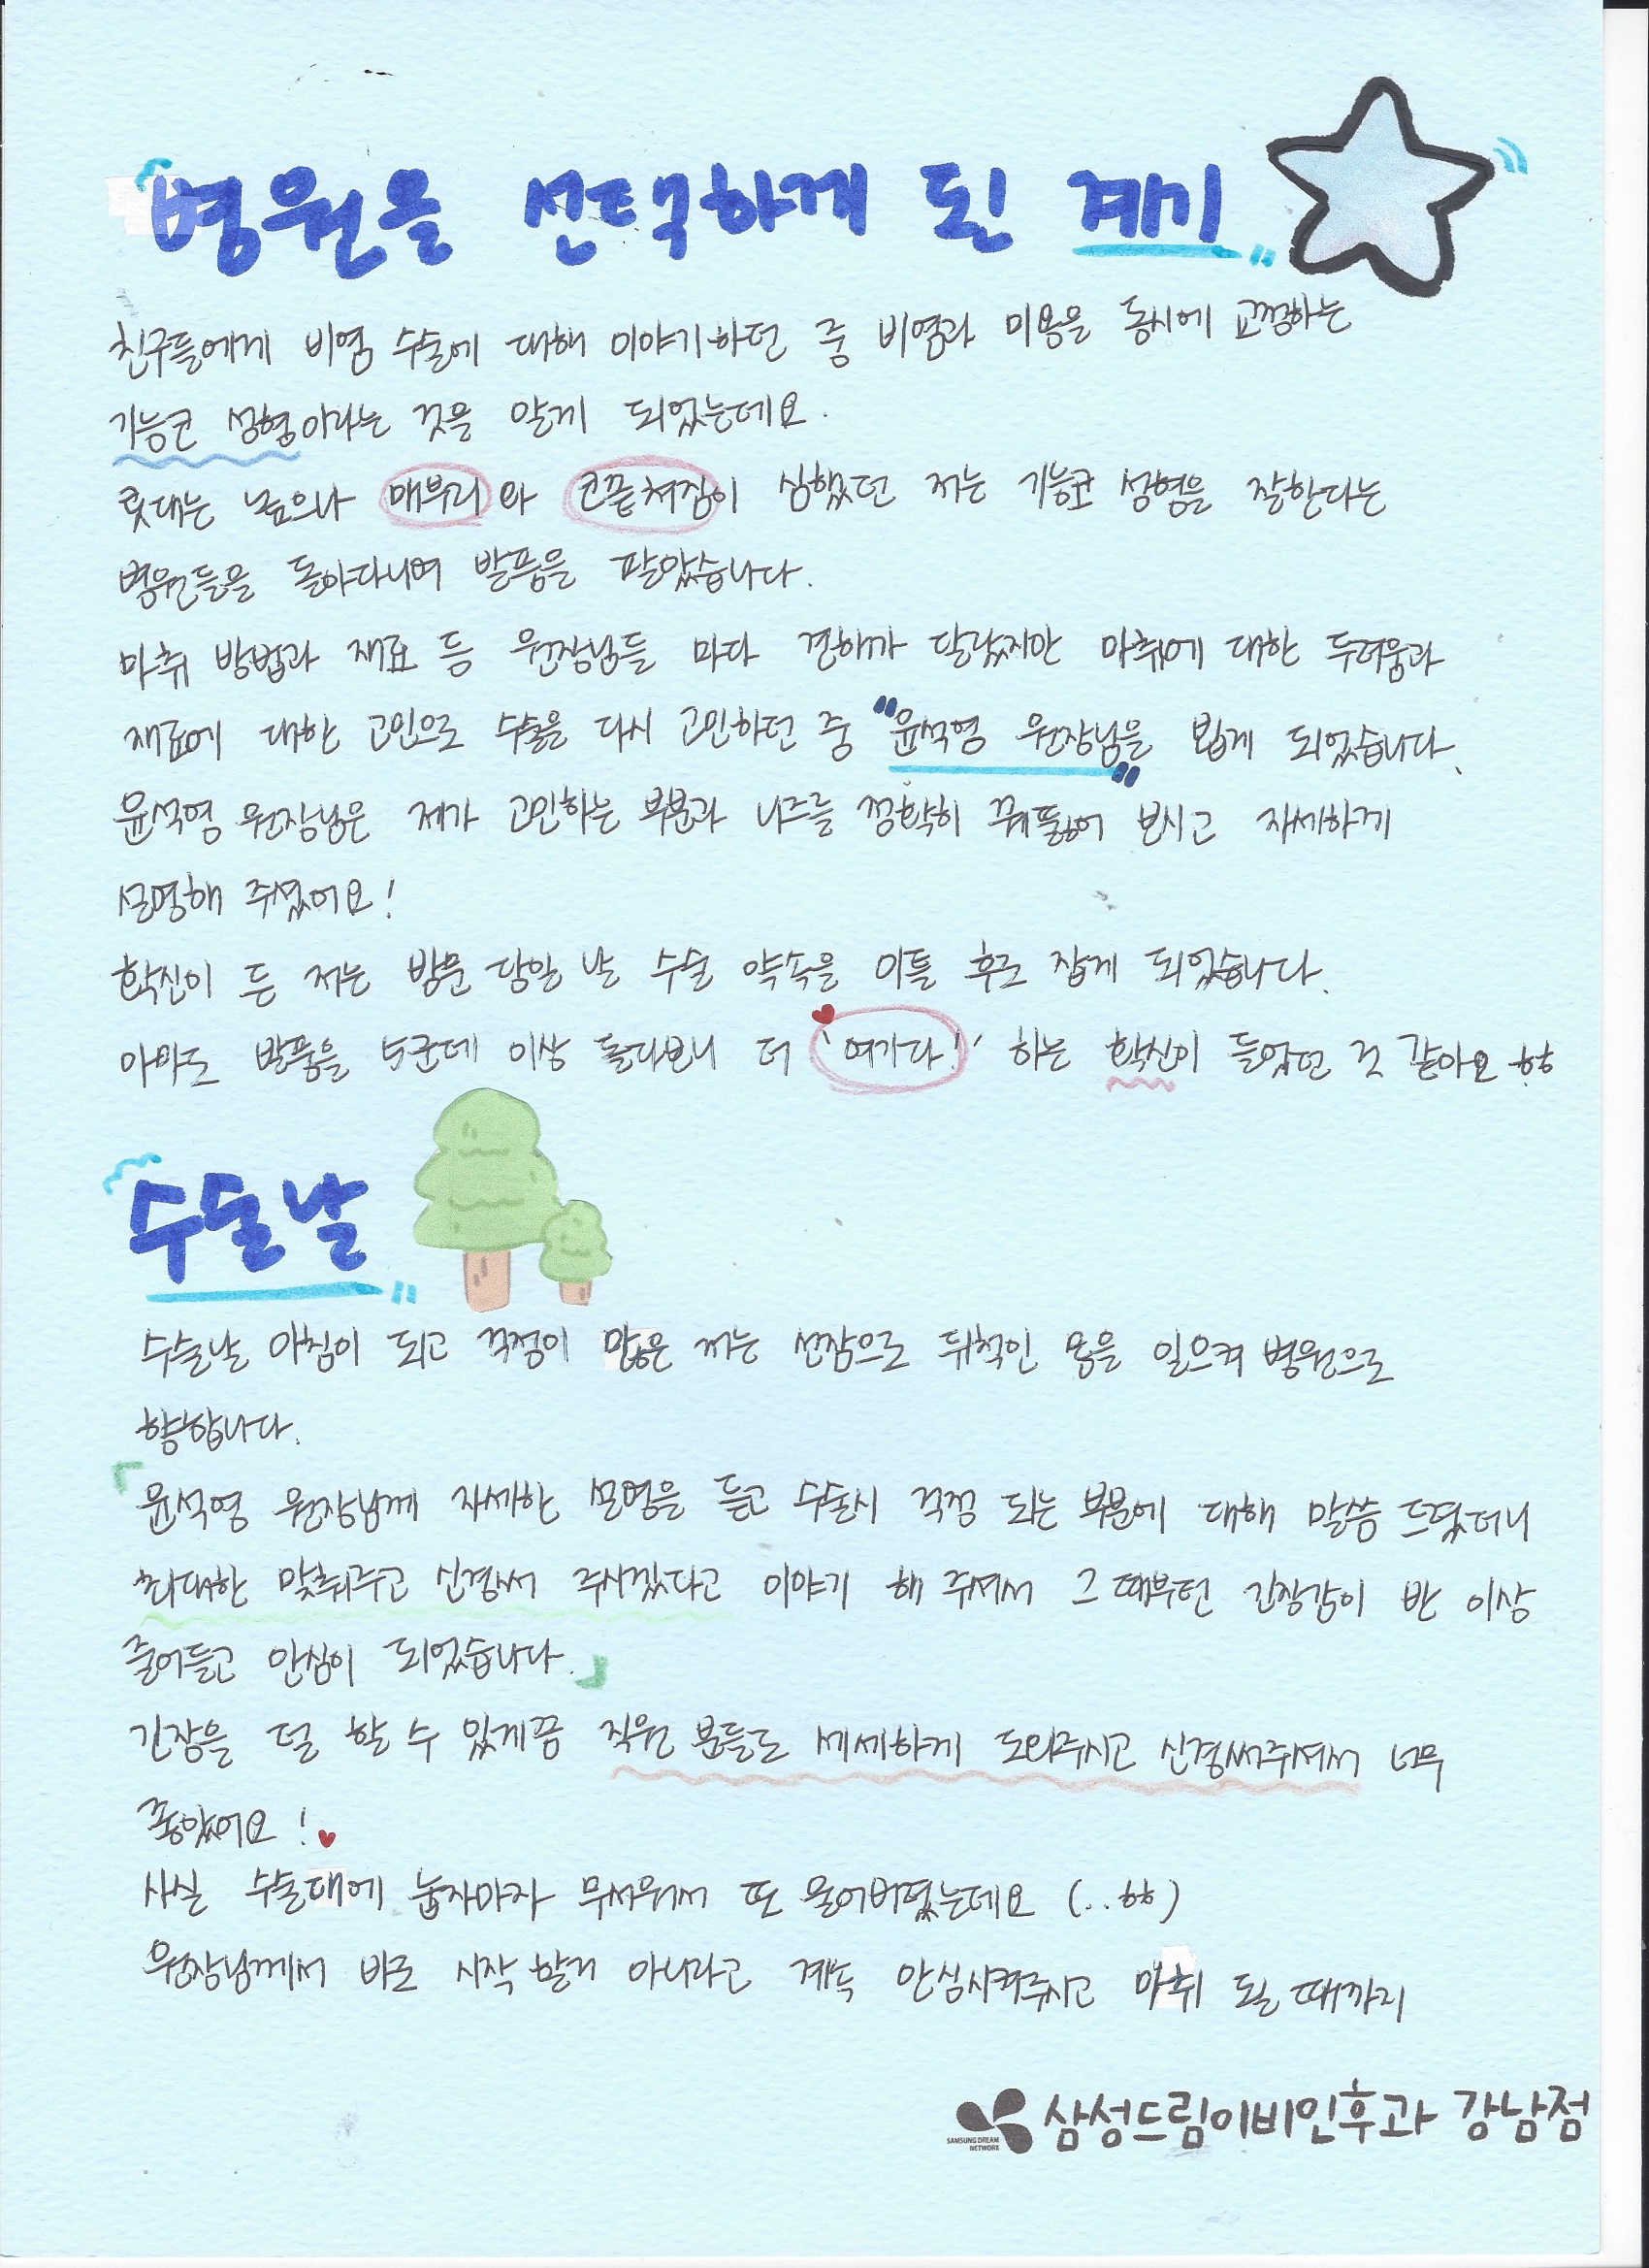 병원을 선택하게 된 계기
친구들에게 비염 수술에 대해 이야기하던 중 비염과 미용을 동시에 교정하는
기능코 성형이라는 것을 알게 되었는데요.
콧대는 높으나 매부리와 코끝처짐이 심했던 저는 기능코 성형을 잘한다는
병원들을 돌아다니며 발품을 팔았습니다.
마취 방법과 재료 등 원장님들 마다 견해가 달랐지만 마취에 대한 두려움과
재료에 대한 고민으로 수술을 다시 고민하던 중 "윤석영 원장님을" 뵙게 되었습니다.
윤석영 원장님은 제가 고민하는 부분과 니즈를 정확히 꿰뚫어 보시고 자세하게
설명해 주셨어요!
확신이 든 저는 방문 당일 날 수술 약속을 이틀 후로 잡게 되었습니다.
아마도 발품을 5군데 이상 돌다보니 더 '여기다!' 하는 확신이 들었던 것 같아요 ㅎㅎ
수술날
수술날 아침이 되고 걱정이 많은 저는 선잠으로 뒤척인 몸을 일으켜 병원으로
향합니다.
『윤석영 원장님께 자세한 설명을 듣고 수술시 걱정 되는 부분에 대해 말씀 드렸더니
최대한 맞춰주고 신경써 주시겠다고 이야기 해 주셔서 그 때부턴 긴장감이 반 이상
줄어들고 안심이 되었습니다.』
긴장을 덜 할 수 있게끔 직원 분들도 세세하게 도와주시고 신경써주셔서 너무
좋았어요!
사실 수술대에 눕자마자 무서워서 또 울어버렸는데요 (..ㅎㅎ)
원장님께서 바로 시작 할거 아니라고 계속 안심시켜주시고 마취 될 때까지
SAMSUNG DREAM NETWORK 삼성드림이비인후과 강남점